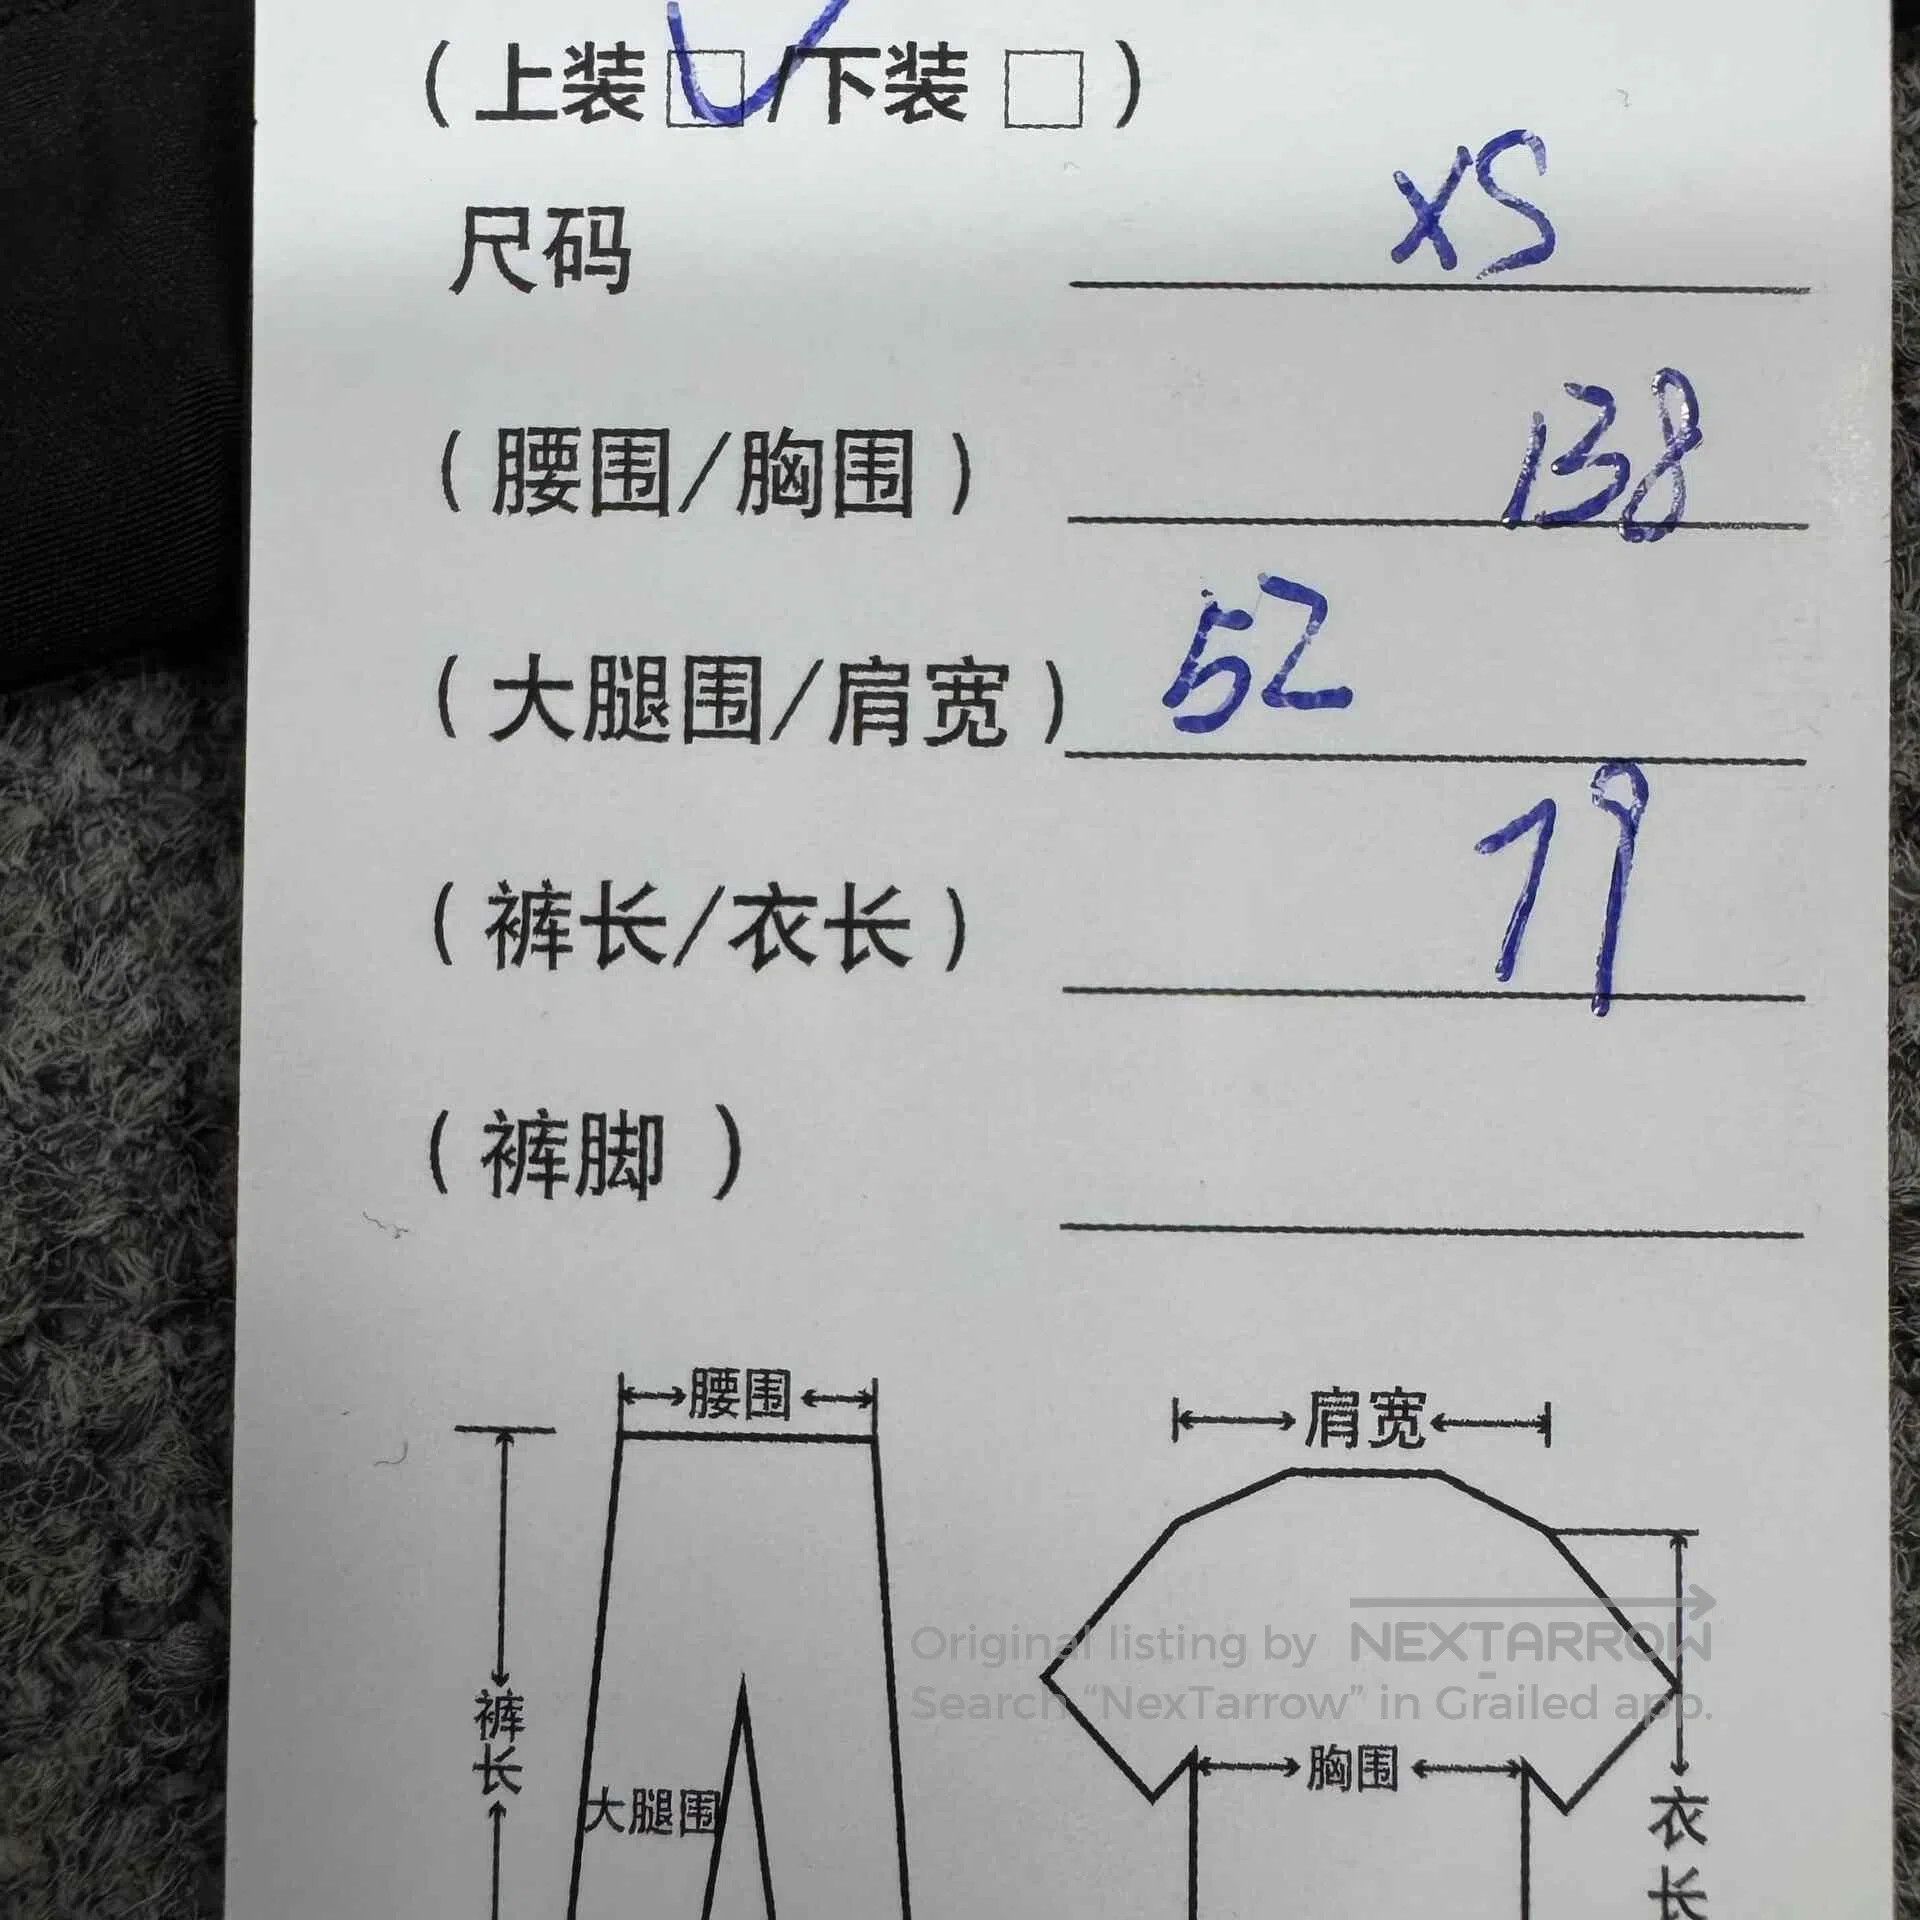 (上装□/下装□)
尺码 XS
(腰围/胸围) 138
(大腿围/肩宽) 52
(裤长/衣长) 79
(裤脚)
腰围
肩宽
Original listing by NEXTARROW
Search “NexTarrow” in Grailed app.
裤长
胸围
大腿围
衣长